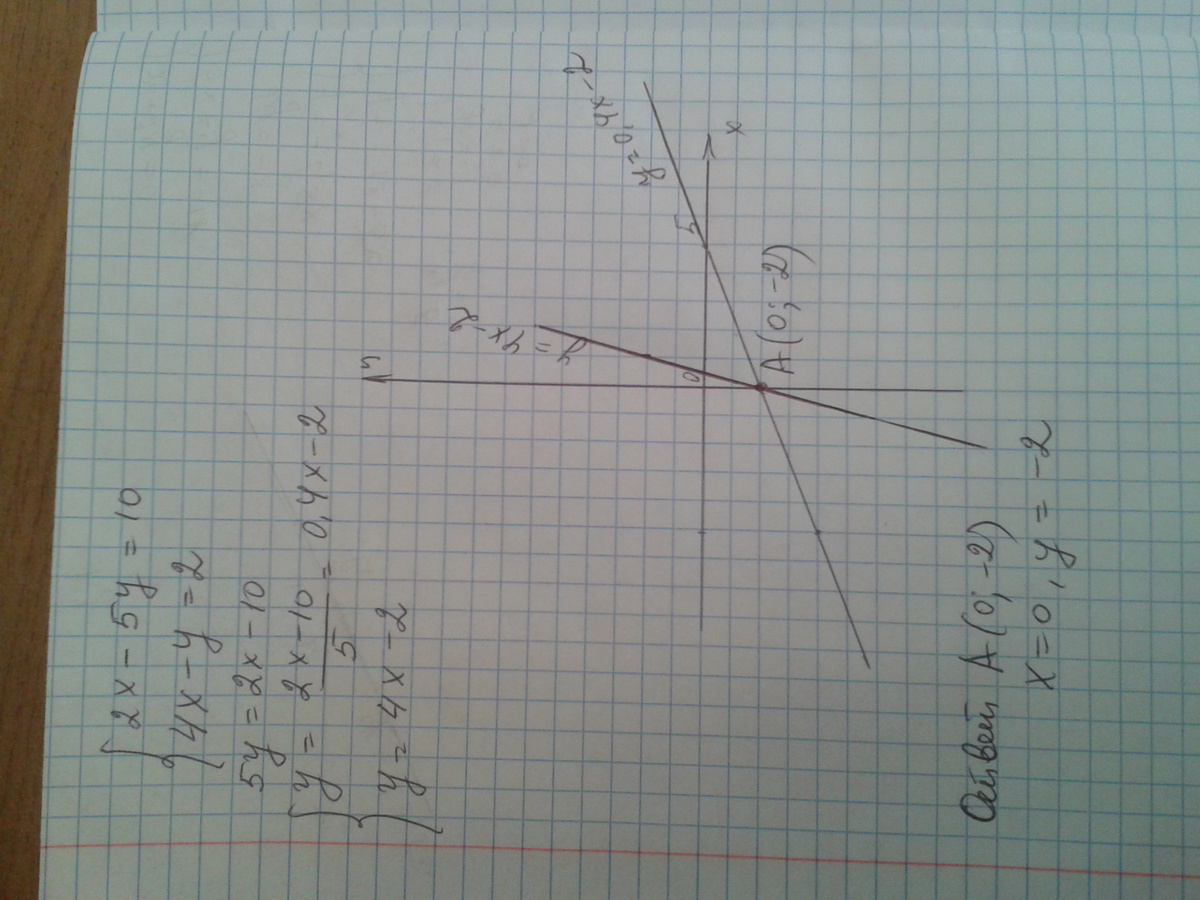 2x - 5y = 10
4x - y = 2
5y = 2x - 10
y = (2x - 10)/5 = 0,4x - 2
y = 4x - 2
y
y = 4x - 2
y = 0,4x - 2
0
5
x
A (0; -2)
Ответ A (0; -2)
x = 0, y = -2